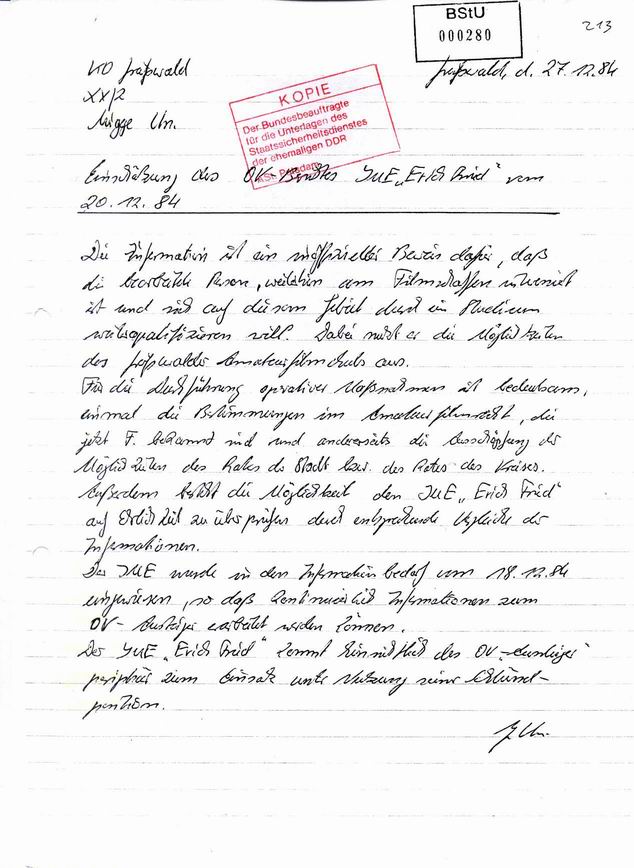 BStU
000280
213
KD Greifswald
Greifswald, d. 27.12.84
XX/2
KOPIE
Der Bundesbeauftragte
für die Unterlagen des
Staatssicherheitsdienstes
der ehemaligen DDR
Einschätzung des OV-Berichtes IME „Erich Fried" vom
20.12.84
Die Information ist ein inoffizieller Beweis dafür, daß
die bearbeitete Person, weiterhin am Filmschaffen interessiert
ist und sich auf diesem Gebiet durch ein Studium
weiterqualifizieren will. Dabei nutzt er die Möglichkeiten
des Greifswalder Amateurfilmclubs aus.
Für die Durchführung operativer Maßnahmen ist bedeutsam,
einmal die Bestimmungen im Amateurfilmrecht, die
jetzt F. bekannt sind und andererseits die Ausschöpfung der
Möglichkeiten des Rates der Stadt bzw. des Rates des Kreises.
Außerdem besteht die Möglichkeit den IME „Erich Fried"
auf Ehrlichkeit zu überprüfen durch entsprechende Vergleiche der
Informationen.
Der IME wurde in den Informationsbedarf vom 18.12.84
eingewiesen, so daß kontinuierlich Informationen zum
OV- erarbeitet werden können.
Der IME „Erich Fried" kommt hinsichtlich des OV
peripher zum Einsatz unter Nutzung seiner
position.